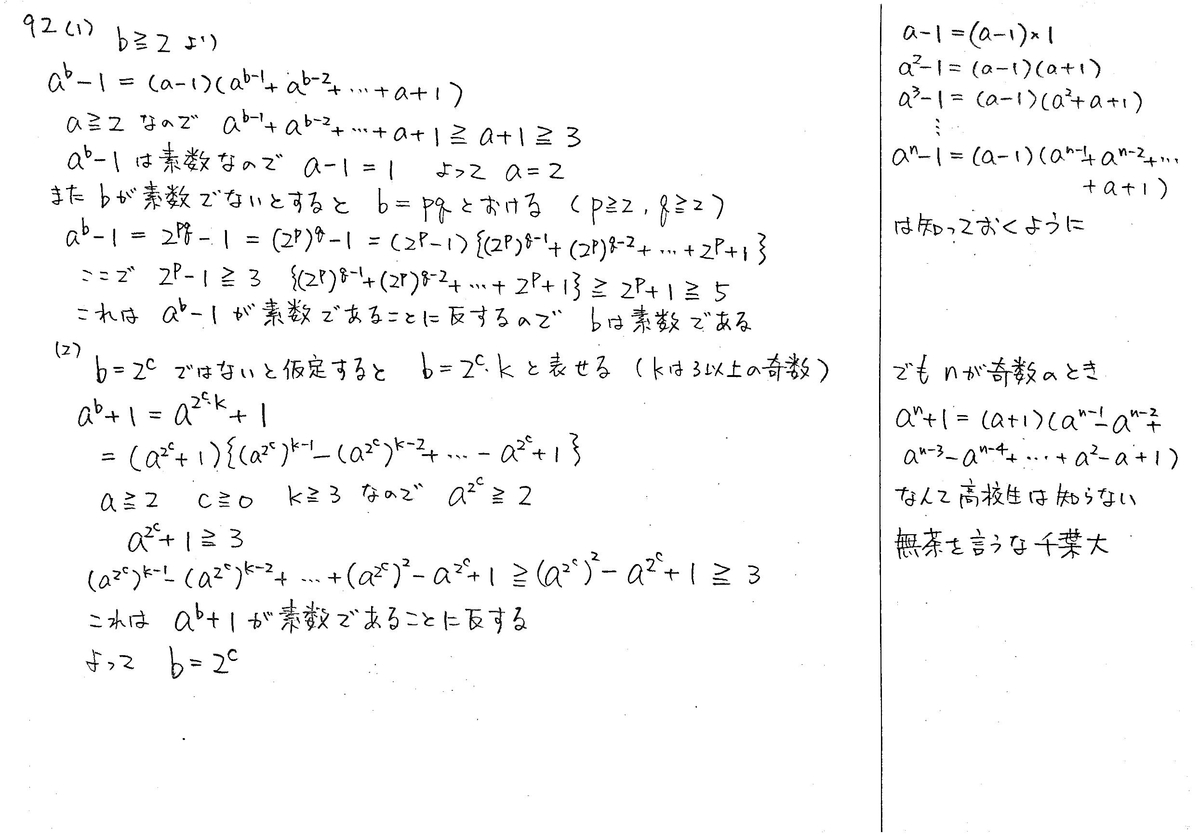 92(1) b≧2 より
a^b-1=(a-1)(a^{b-1}+a^{b-2}+…+a+1)
a≧2 なので a^{b-1}+a^{b-2}+…+a+1≧a+1≧3
a^b-1は素数なので a-1=1 よって a=2
また bが素数でないとすると b=pqとおける (p≧2, q≧2)
a^b-1=2^{pq}-1=(2^p)^q-1=(2^p-1){(2^p)^{q-1}+(2^p)^{q-2}+…+2^p+1}
ここで 2^p-1≧3 {(2^p)^{q-1}+(2^p)^{q-2}+…+2^p+1}≧2^p+1≧5
これは a^b-1が素数であることに反するので bは素数である
(2) b=2^c ではないと仮定すると b=2^c・kと表せる (kは3以上の奇数)
a^b+1=a^{2^c・k}+1
=(a^{2^c}+1){(a^{2^c})^{k-1}-(a^{2^c})^{k-2}+…-a^{2^c}+1}
a≧2 c≧0 k≧3 なので a^{2^c}≧2
a^{2^c}+1≧3
(a^{2^c})^{k-1}-(a^{2^c})^{k-2}+…+(a^{2^c})^2-a^{2^c}+1≧(a^{2^c})^2-a^{2^c}+1≧3
これは a^b+1が素数であることに反する
よって b=2^c
a-1=(a-1)×1
a^2-1=(a-1)(a+1)
a^3-1=(a-1)(a^2+a+1)
⋮
a^n-1=(a-1)(a^{n-1}+a^{n-2}+…
+a+1)
は知っておくように
でも nが奇数のとき
a^n+1=(a+1)(a^{n-1}-a^{n-2}+
a^{n-3}-a^{n-4}+…+a^2-a+1)
なんて高校生は知らない
無茶を言うな千葉大